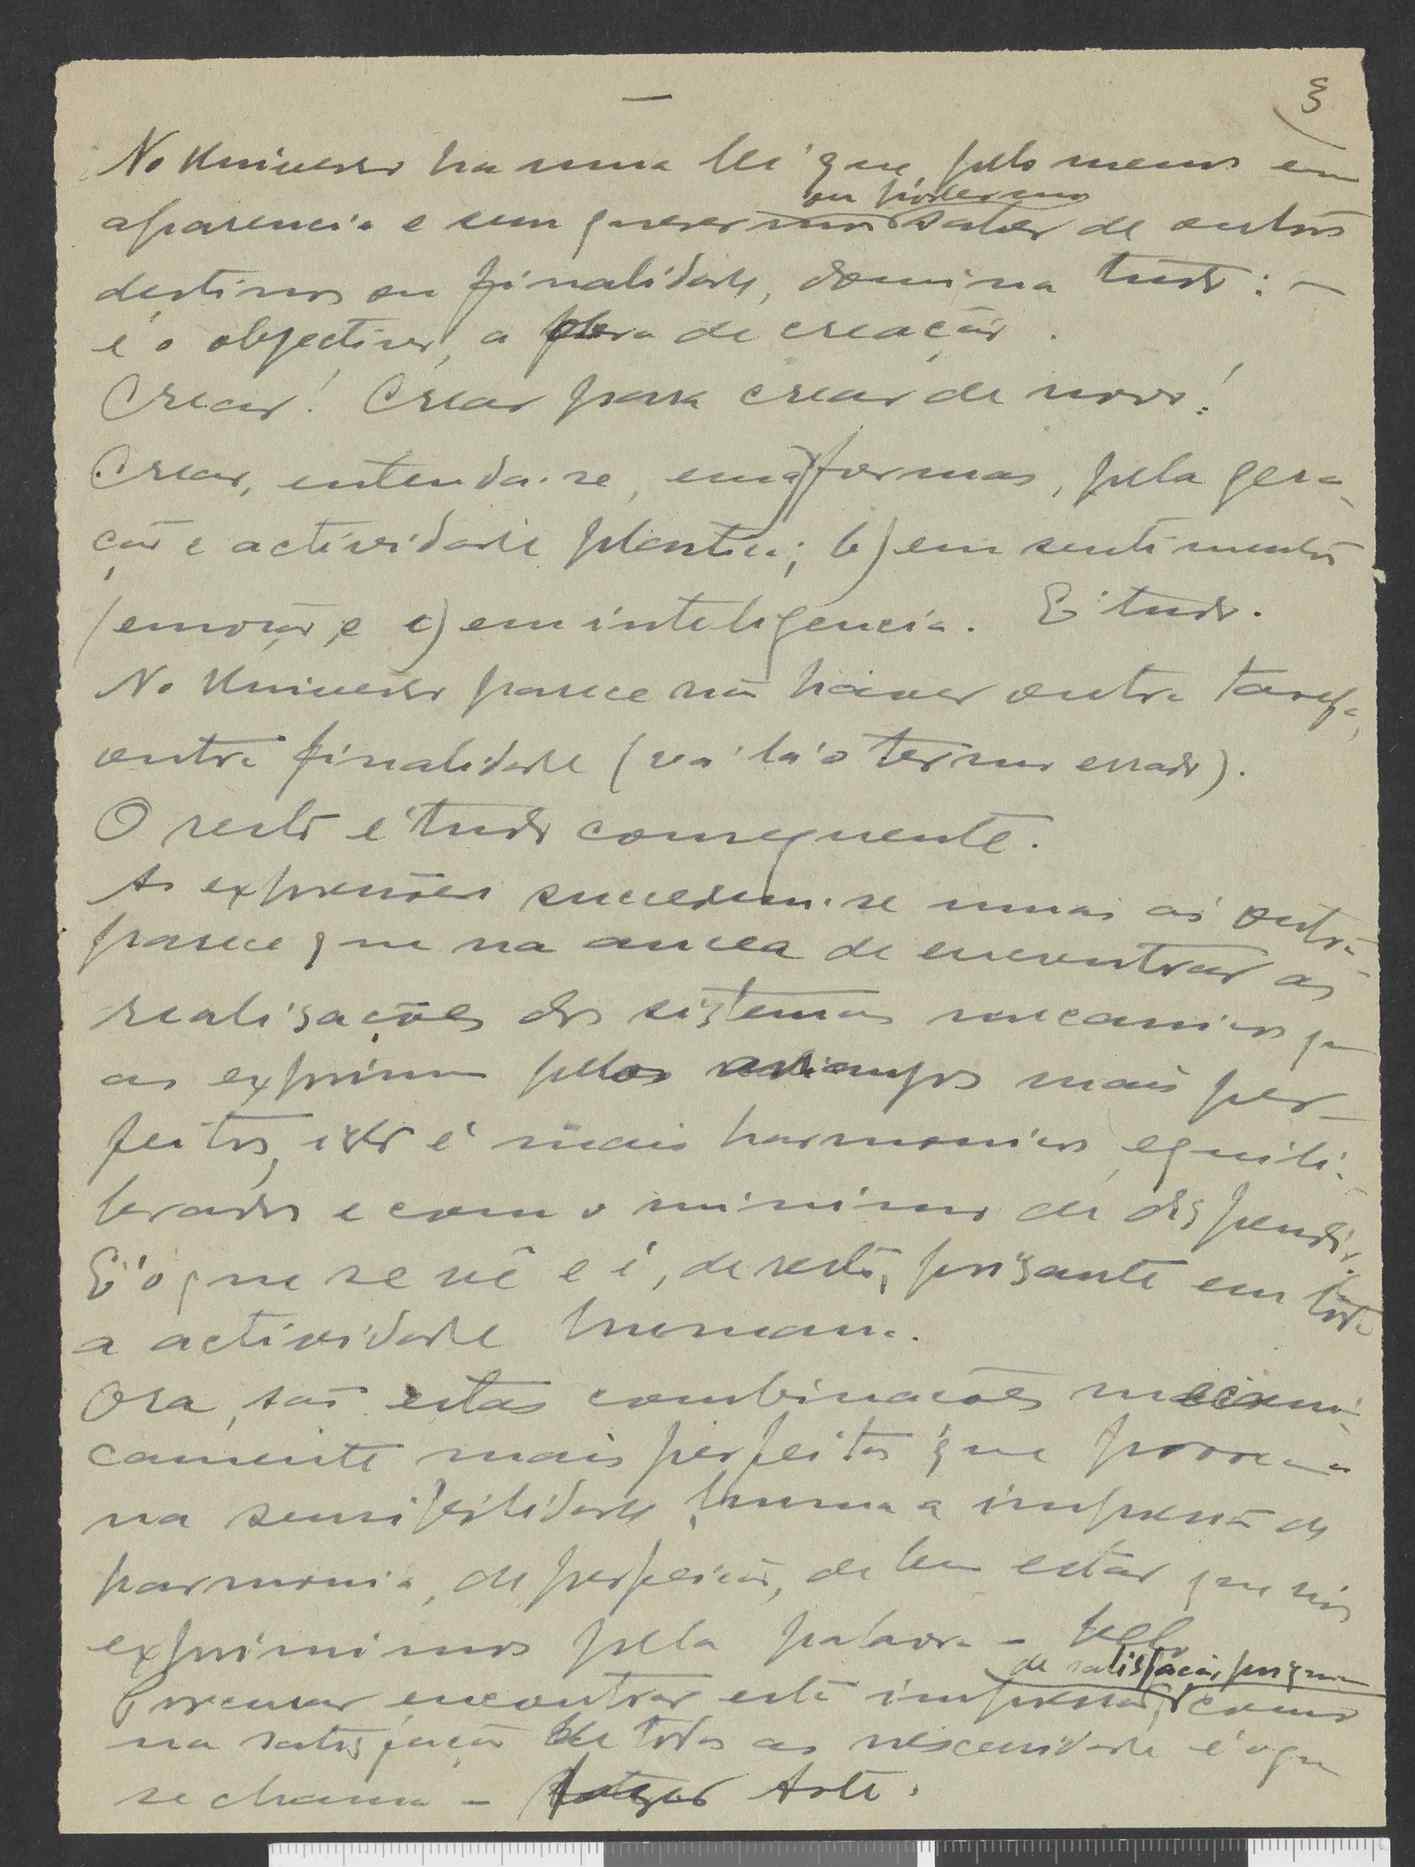 3
No Universo ha uma lei que, pelo menos em
ou podermos
aparencia e sem querermos saber de outros
destinos ou finalidade, domina tudo: —
é o objectivo, a obra de creação.
Crear! Crear para crear de novo!
Crear, entenda-se, em a) formas, pela gera-
ção e actividade plastica; b) em sentimentos
/emoção, e c) em inteligencia. É tudo.
No Universo parece não haver outra tarefa,
outra finalidade (vá lá o termo errado).
O resto é tudo consequente.
As expressões sucedem-se umas ás outras
parece que na ancea de encontrar as
realisações dos sistemas mecanicos que
as exprimem pelos mais per-
feitos, isto é mais harmonicos, equili-
brados e com o minimo de dispendio.
É o que se vê e é, de resto, frisante em toda
a actividade humana.
Ora, são estas combinações mecani-
camente mais perfeitas que provocam
na sensibilidade humana a impressão de
harmonia, de perfeição, de bem estar que nós
exprimimos pela palavra — belo
de satisfação, porque
Procurar encontrar esta impressão, como
na satisfação de todas as necessidades é o que
se chama — Arte.